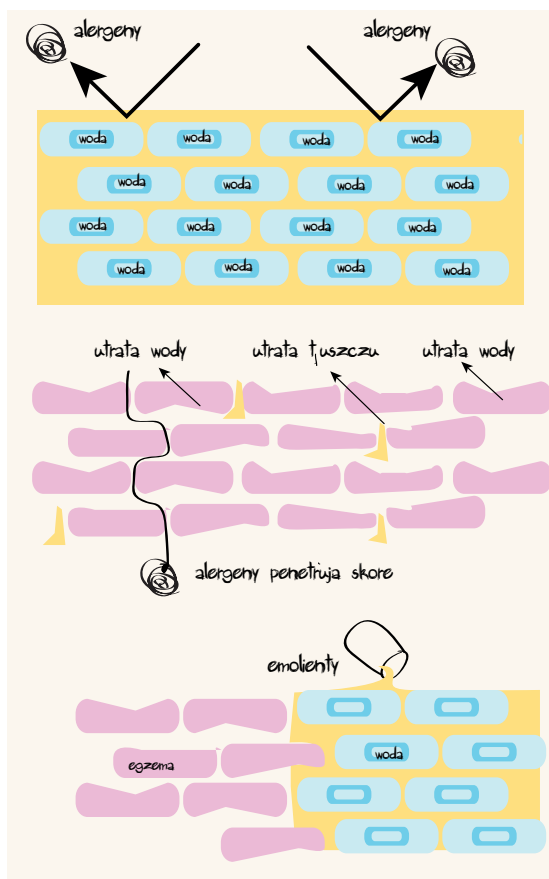 alergeny alergeny
woda woda woda woda
woda woda woda woda
woda woda woda woda
woda woda woda woda
utrata wody utrata tłuszczu utrata wody
alergeny penetruja skore
emolienty
woda
egzema